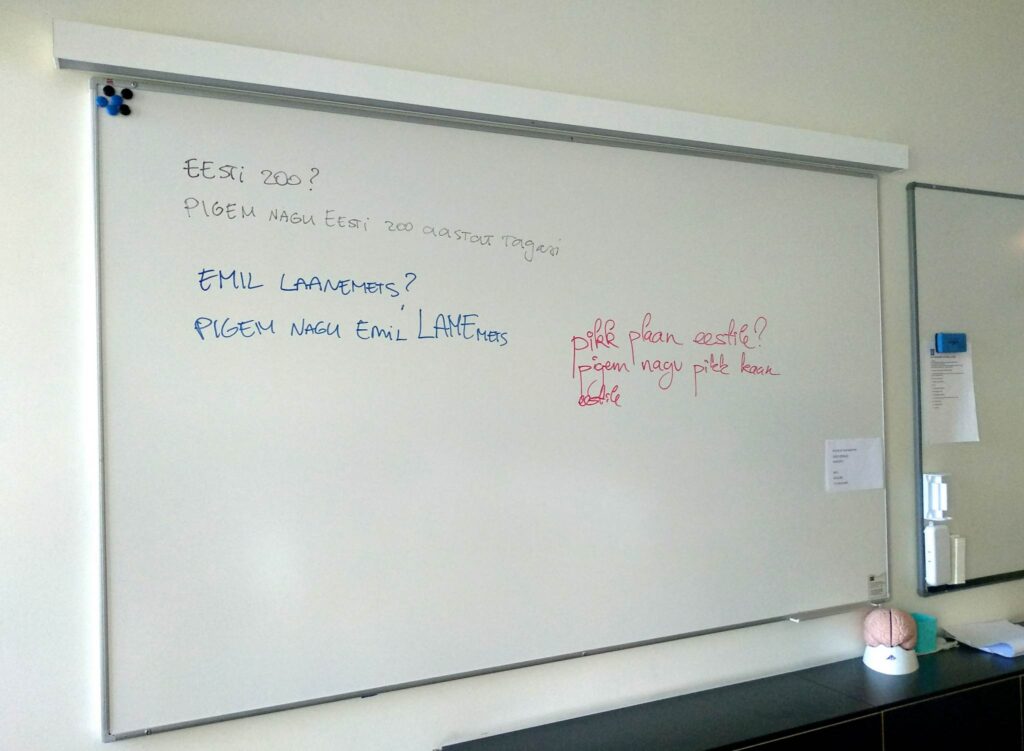 EESTi 200?
PIGEM NAGU EESTi 200 aasTaT Tagasi
EMIL LAANEMETS?
PIGEM NAGU EMiL LAMEMETS
pikk plaan eestile?
pigem nagu pikk kaan
eestile